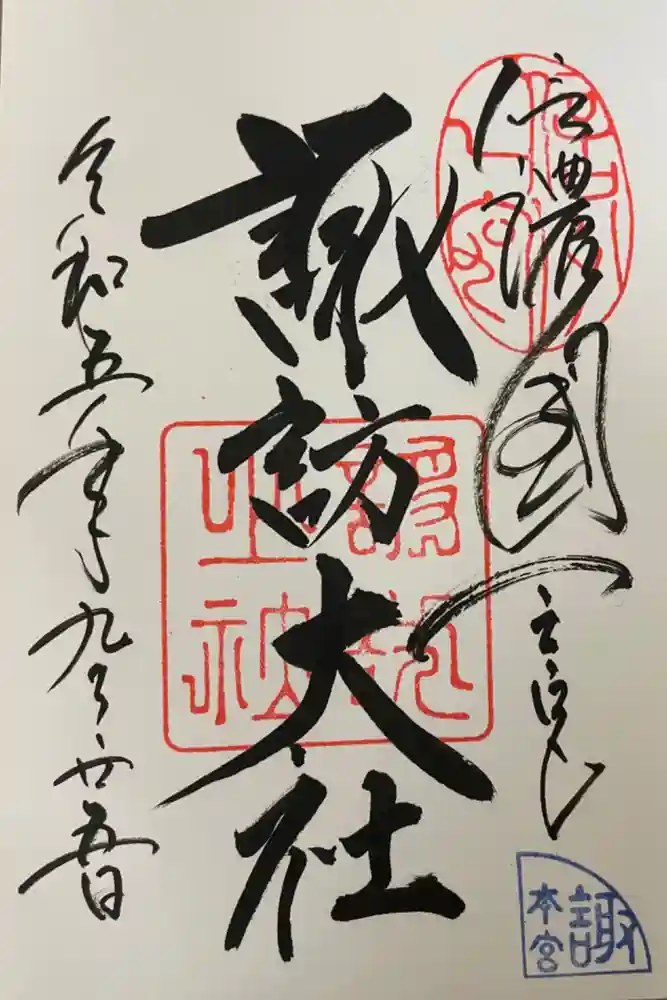 信濃國一之宮
諏訪大社
令和五年九月廿五日
諏
本宮